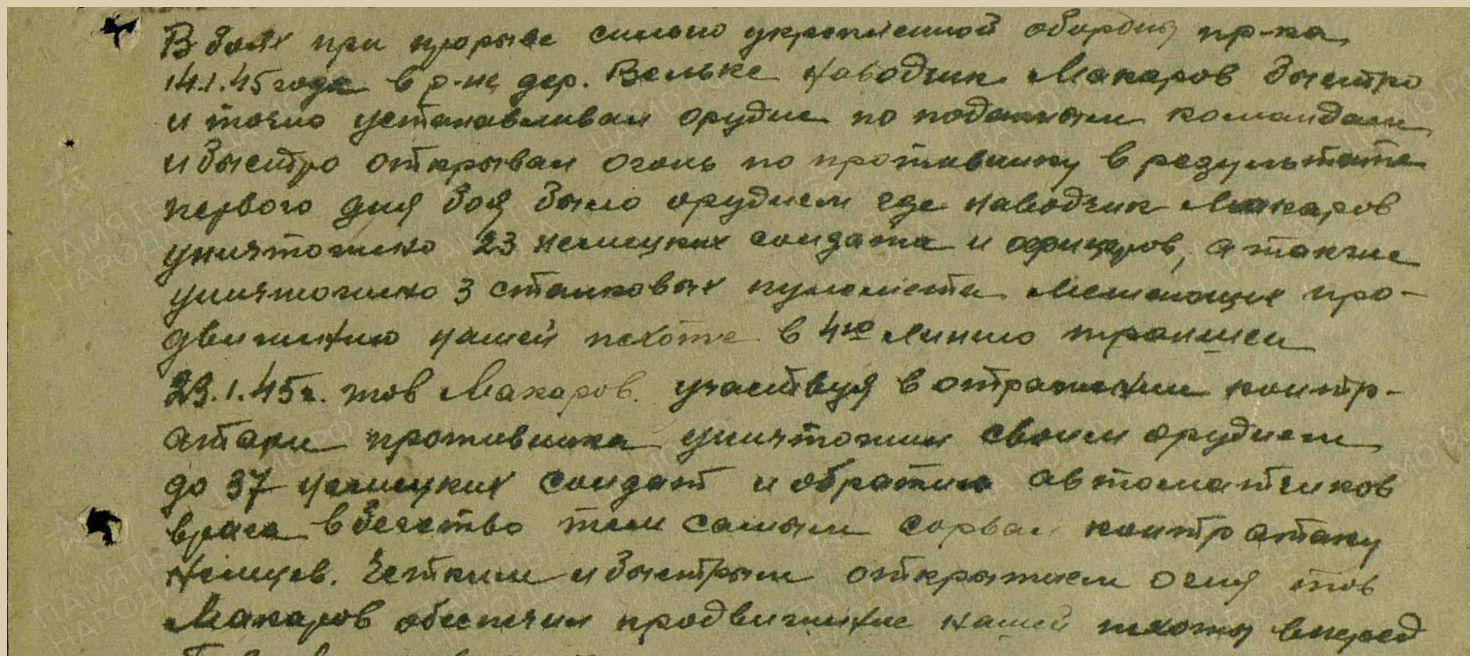 В боях при прорыве сильно укрепленной обороны пр-ка
14.1.45 года в р-не дер. Вельке наводчик Макаров быстро
и точно устанавливал орудие по поданным командам
и быстро открывал огонь по противнику в результате
первого дня боя было орудием где наводчик Макаров
уничтожено 23 немецких солдата и офицеров, а также
уничтожено 3 станковых пулемета мешающих про-
движению нашей пехоте в 4ю линию траншеи
23.1.45г. тов Макаров. участвуя в отражении контр-
атаки противника уничтожил своим орудием
до 37 немецких солдат и обратил автоматчиков
врага в бегство тем самым сорвал контратаку
немцев. Четким и быстрым открытием огня тов
Макаров обеспечил продвижение нашей пехоты вперед